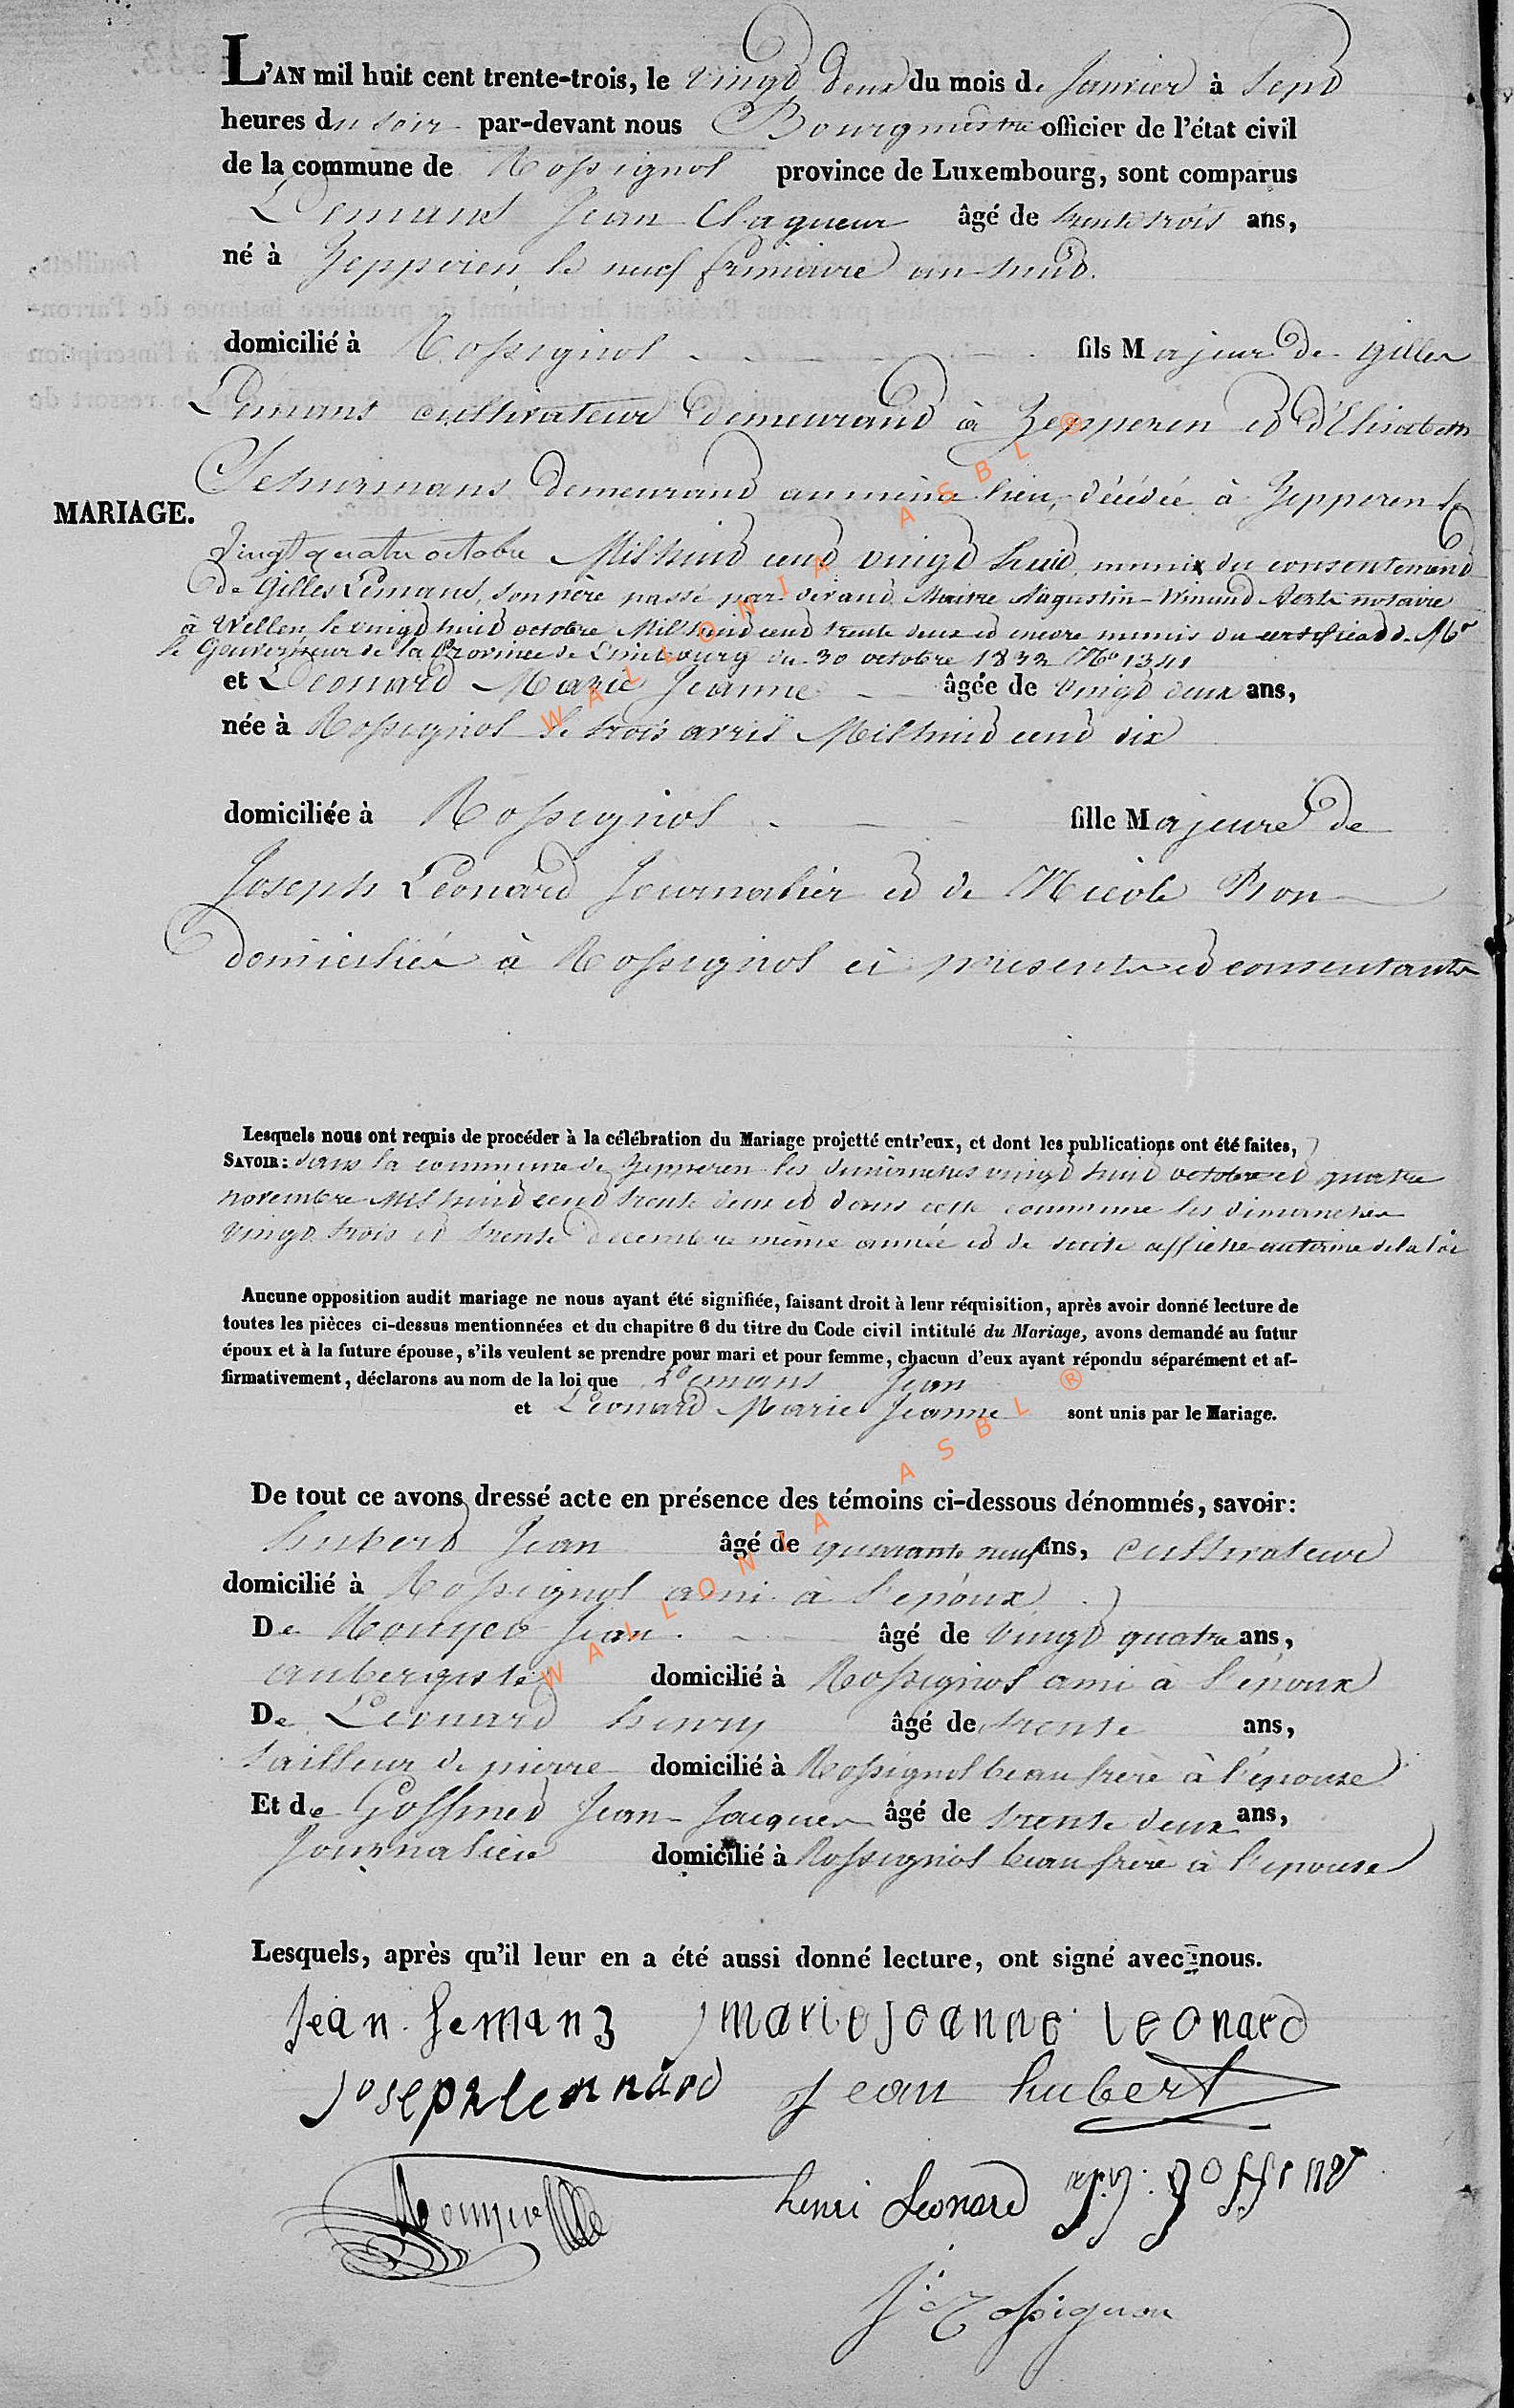 L'AN mil huit cent trente-trois, le vingt deux du mois de Janvier à Sept
heures du soir par-devant nous Bourgmestre officier de l'état civil
de la commune de Rossignol province de Luxembourg, sont comparus
Lemans Jean Claqueur âgé de trente trois ans,
né à Zepperen le neuf frimaire an huit.
domicilié à Rossignol fils Majeur de Gilles
Lemans cultivateur demeurant à Zepperen et d'Elisabeth
Schurmans demeurant au même lieu, décédée à Zepperen le
MARIAGE.
vingt quatre octobre Mil huit cent vingt huit, munix du consentement
de Gilles Lemans, son père passé par devant Maitre Augustin-Winand Aerts notaire
à Wellen le vingt huit octobre Mil huit cent trente deux et encore munis du certificat de Mr
le Gouverneur de la Province de Limbourg du 30 octobre 1832 No 1341
et Léonard Marie Jeanne âgée de vingt deux ans,
née à Rossignol le trois avril Mil huit cent dix
domiciliée à Rossignol fille Majeure de
Joseph Léonard Journalier et de Nicole Pron
domiciliés à Rossignol ci présents et consentants
Lesquels nous ont requis de procéder à la célébration du Mariage projetté entr'eux, et dont les publications ont été faites,
SAVOIR: dans la commune de Zepperen les dimanches vingt huit octobre et quatre
novembre Mil huit cent trente deux et dans cette commune les dimanches
vingt trois et trente décembre même année et de suite affiché au terme de la loi
Aucune opposition audit mariage ne nous ayant été signifiée, faisant droit à leur réquisition, après avoir donné lecture de
toutes les pièces ci-dessus mentionnées et du chapitre 6 du titre du Code civil intitulé du Mariage, avons demandé au futur
époux et à la future épouse, s'ils veulent se prendre pour mari et pour femme, chacun d'eux ayant répondu séparément et af-
firmativement, déclarons au nom de la loi que Lemans Jean
et Léonard Marie Jeanne sont unis par le Mariage.
De tout ce avons dressé acte en présence des témoins ci-dessous dénommés, savoir:
hubert Jean âgé de quarante neuf ans, cultivateur
domicilié à Rossignol ami à l'époux
De Jean âgé de vingt quatre ans,
aubergiste domicilié à Rossignol ami à l'époux
De Léonard henry âgé de trente ans,
tailleur de pierre domicilié à Rossignol beau frère à l'épouse
Et de Goffinet Jean-Jacques âgé de trente deux ans,
Journalier domicilié à Rossignol beau frère à l'épouse
Lesquels, après qu'il leur en a été aussi donné lecture, ont signé avec nous.
Jean Lemans marie Jeanne leonard
Joseph leonnard Jean hubert
henri Leonard J. J. goffinet
J. Rossignon
WALLONIA ASBL ®
WALLONIA ASBL ®